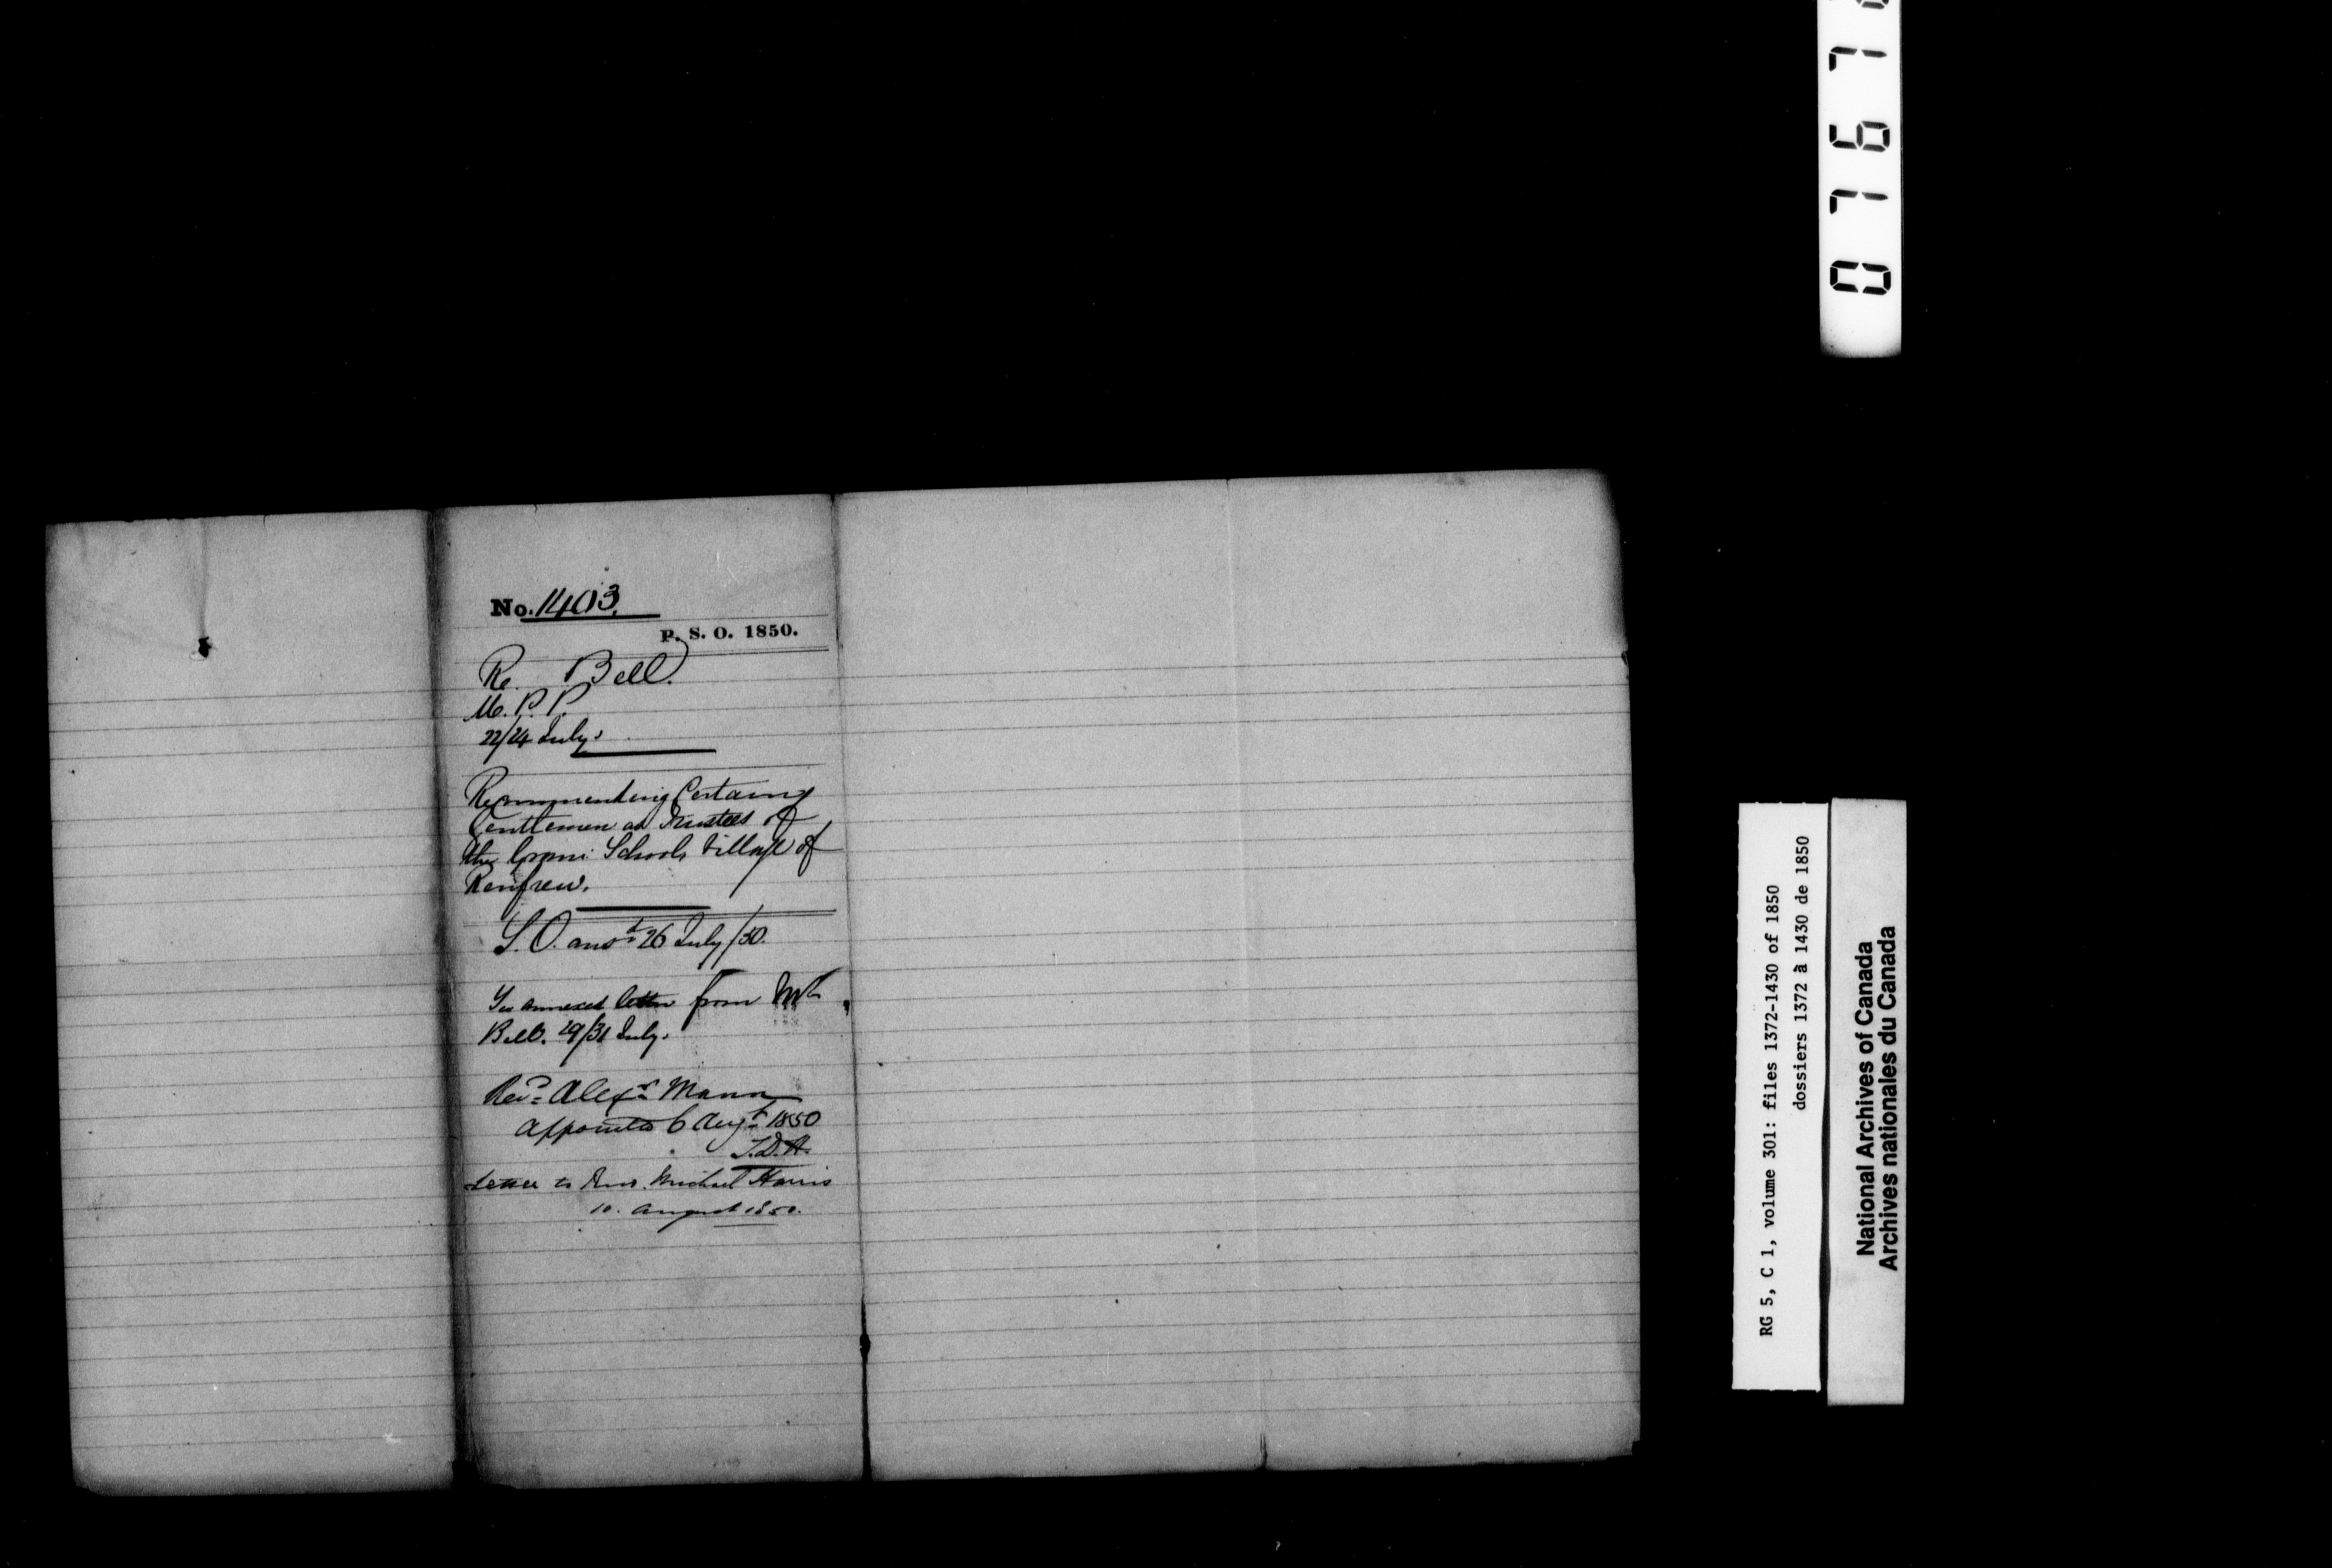 No. 1403.
P. S. O. 1850.
Re. Bell.
M. P. P.
22/24 July.
Recommending Certain
Gentlemen as Trustees of
the Schools Village of
Renfrew.
S.O. ansd 26 July/50.
See annexed letter from Mr
Bell. 29/31 July.
Revd Alexr Mann
appointed 6 Augt 1850
Letter to Revd. Michael Harris
10. August 1850.
RG 5, C 1, volume 301: files 1372-1430 of 1850
dossiers 1372 à 1430 de 1850
National Archives of Canada
Archives nationales du Canada